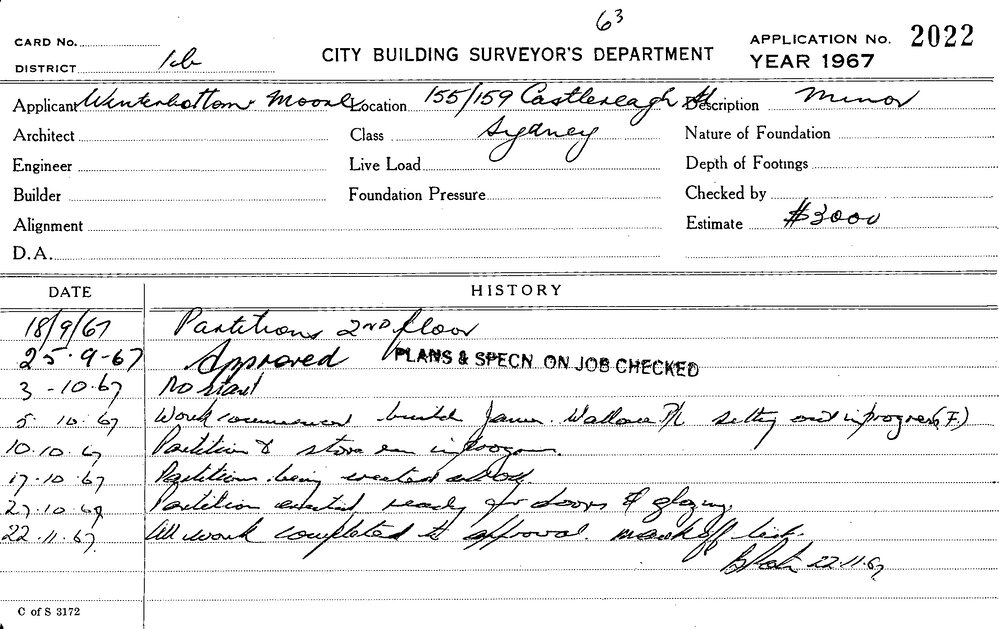 63
CARD No. APPLICATION No. 2022
DISTRICT CITY BUILDING SURVEYOR'S DEPARTMENT YEAR 1967
Applicant Winterbottom Moore Location 155/159 Castlereagh St Description Minor
Architect Class Sydney Nature of Foundation
Engineer Live Load Depth of Footings
Builder Foundation Pressure Checked by
Alignment Estimate $3000
D.A.
DATE HISTORY
18/9/67 Partitions 2ND floor
25-9-67 Approved PLANS & SPECN. ON JOB CHECKED
3-10-67 No start
5 10.67 Work commenced James Wallace P/L setting out in progress (F.)
10.10.67 Partition & store in progress.
17.10.67 Partitions being erected
27.10.67 Partition erected ready for doors & glazing.
22.11.67 All work completed to approval. mark off list.
22.11.67
C of S 3172